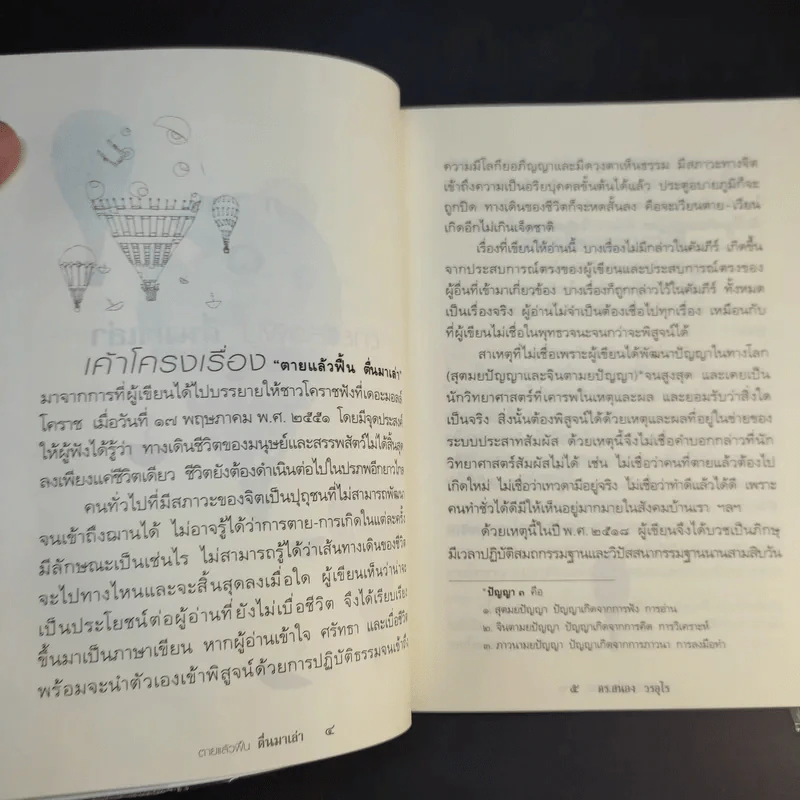 เค้าโครงเรื่อง "ตายแล้วฟื้น ตื่นมาเล่า"
มาจากการที่ผู้เขียนได้ไปบรรยายให้ชาวโคราชฟังที่เดอะมอลล์
โคราช เมื่อวันที่ ๑๗ พฤษภาคม พ.ศ. ๒๕๕๑ โดยมีจุดประสงค์
ให้ผู้ฟังได้รู้ว่า ทางเดินชีวิตของมนุษย์และสรรพสัตว์ไม่ได้สิ้นสุด
ลงเพียงแค่ชีวิตเดียว ชีวิตยังต้องดำเนินต่อไปในปรภพอีกยาวไกล
คนทั่วไปที่มีสภาวะของจิตเป็นปุถุชนที่ไม่สามารถพัฒนา
จนเข้าถึงฌานได้ ไม่อาจรู้ได้ว่าการตาย-การเกิดในแต่ละครั้ง
มีลักษณะเป็นเช่นไร ไม่สามารถรู้ได้ว่าเส้นทางเดินของชีวิต
จะไปทางไหนและจะสิ้นสุดลงเมื่อใด ผู้เขียนเห็นว่าน่าจะ
เป็นประโยชน์ต่อผู้อ่านที่ยังไม่เบื่อชีวิต จึงได้เรียบเรียง
ขึ้นมาเป็นภาษาเขียน หากผู้อ่านเข้าใจ ศรัทธา และเบื่อชีวิต
พร้อมจะนำตัวเองเข้าพิสูจน์ด้วยการปฏิบัติธรรมจนเข้าถึง
ตายแล้วฟื้น ตื่นมาเล่า ๔
ความมีโลกียอภิญญาและมีดวงตาเห็นธรรม มีสภาวะทางจิต
เข้าถึงความเป็นอริยบุคคลขั้นต้นได้แล้ว ประตูอบายภูมิก็จะ
ถูกปิด ทางเดินของชีวิตก็จะหดสั้นลง คือจะเวียนตาย-เวียน
เกิดอีกไม่เกินเจ็ดชาติ
เรื่องที่เขียนให้อ่านนี้ บางเรื่องไม่มีกล่าวในคัมภีร์ เกิดขึ้น
จากประสบการณ์ตรงของผู้เขียนและประสบการณ์ตรงของ
ผู้อื่นที่เข้ามาเกี่ยวข้อง บางเรื่องก็ถูกกล่าวไว้ในคัมภีร์ ทั้งหมด
เป็นเรื่องจริง ผู้อ่านไม่จำเป็นต้องเชื่อไปทุกเรื่อง เหมือนกับ
ที่ผู้เขียนไม่เชื่อในพุทธวจนะจนกว่าจะพิสูจน์ได้
สาเหตุที่ไม่เชื่อเพราะผู้เขียนได้พัฒนาปัญญาในทางโลก
(สุตมยปัญญาและจินตามยปัญญา)*จนสูงสุด และเคยเป็น
นักวิทยาศาสตร์ที่เคารพในเหตุและผล และยอมรับว่าสิ่งใด
เป็นจริง สิ่งนั้นต้องพิสูจน์ได้ด้วยเหตุและผลที่อยู่ในข่ายของ
ระบบประสาทสัมผัส ด้วยเหตุนี้จึงไม่เชื่อคำบอกกล่าวที่นัก
วิทยาศาสตร์สัมผัสไม่ได้ เช่น ไม่เชื่อว่าคนที่ตายแล้วต้องไป
เกิดใหม่ ไม่เชื่อว่าเทวดามีอยู่จริง ไม่เชื่อว่าทำดีแล้วได้ดี เพราะ
คนทำชั่วได้ดีมีให้เห็นอยู่มากมายในสังคมบ้านเรา ฯลฯ
ด้วยเหตุนี้ในปี พ.ศ. ๒๕๑๘ ผู้เขียนจึงได้บวชเป็นภิกษุ
มีเวลาปฏิบัติสมถกรรมฐานและวิปัสสนากรรมฐานนานสามสิบวัน
*ปัญญา ๓ คือ
๑. สุตมยปัญญา ปัญญาเกิดจากการฟัง การอ่าน
๒. จินตามยปัญญา ปัญญาเกิดจากการคิด การวิเคราะห์
๓. ภาวนามยปัญญา ปัญญาเกิดจากการภาวนา การลงมือทำ
๕ ดร.สนอง วรอุไร